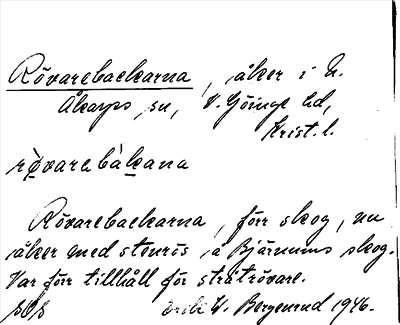 Rövarebackarna, åker i N.
Åkarps sn, V. Göinge hd,
Krist. l.
rø̀varebàkana
Rövarebackarna, förr skog, nu
åker med stenrös å Bjärnums skog.
Var förr tillhåll för stråtrövare.
W. Bergenrud 1946.